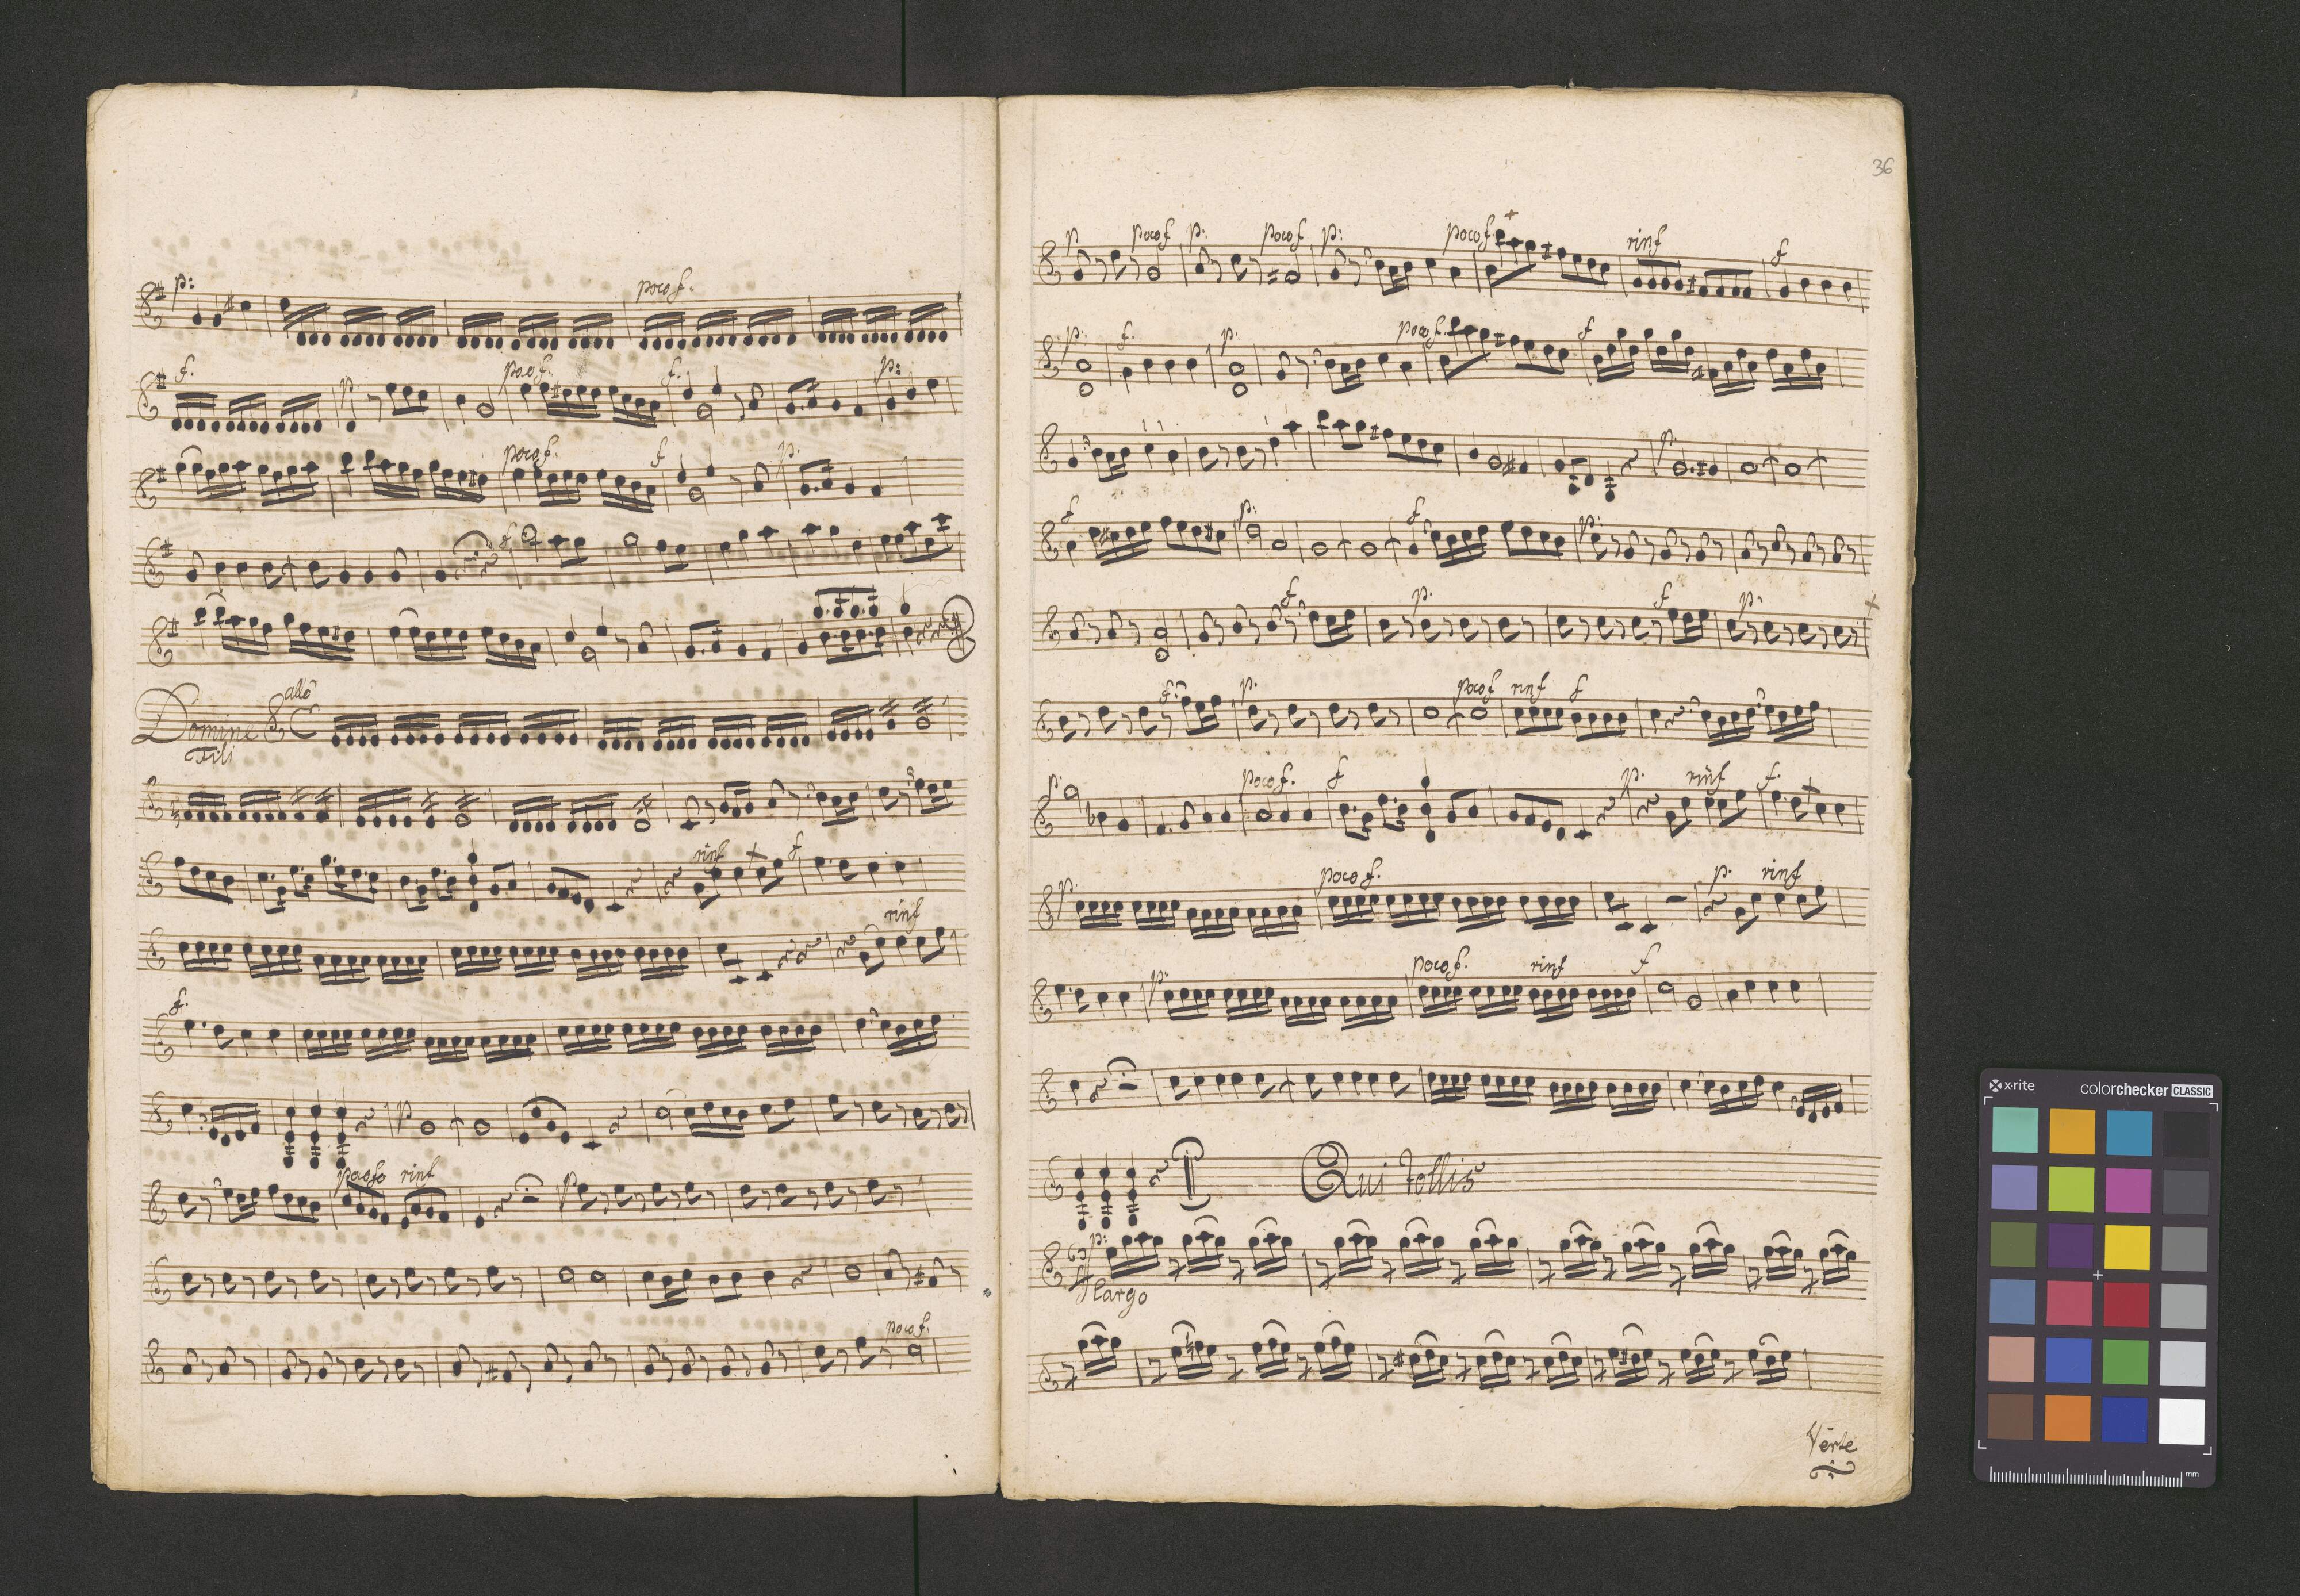 p: poco f.
f. p poco f. f. p:
poco f. f p.
f
Domine allo
Fili
rinf f
rinf
f.
p
poco fo rinf p
poco f.
36
p poco f p: poco f p: poco f. rinf f
p: f. p. poco f. f
p
f p: f p:
f p. f p:
f: p. poco f rinf f
p: poco f. f p. rinf f.
p. poco f. p. rinf
p: poco f. rinf f
Qui tollis
p:
Largo
Verte
x-rite colorchecker CLASSIC
mm